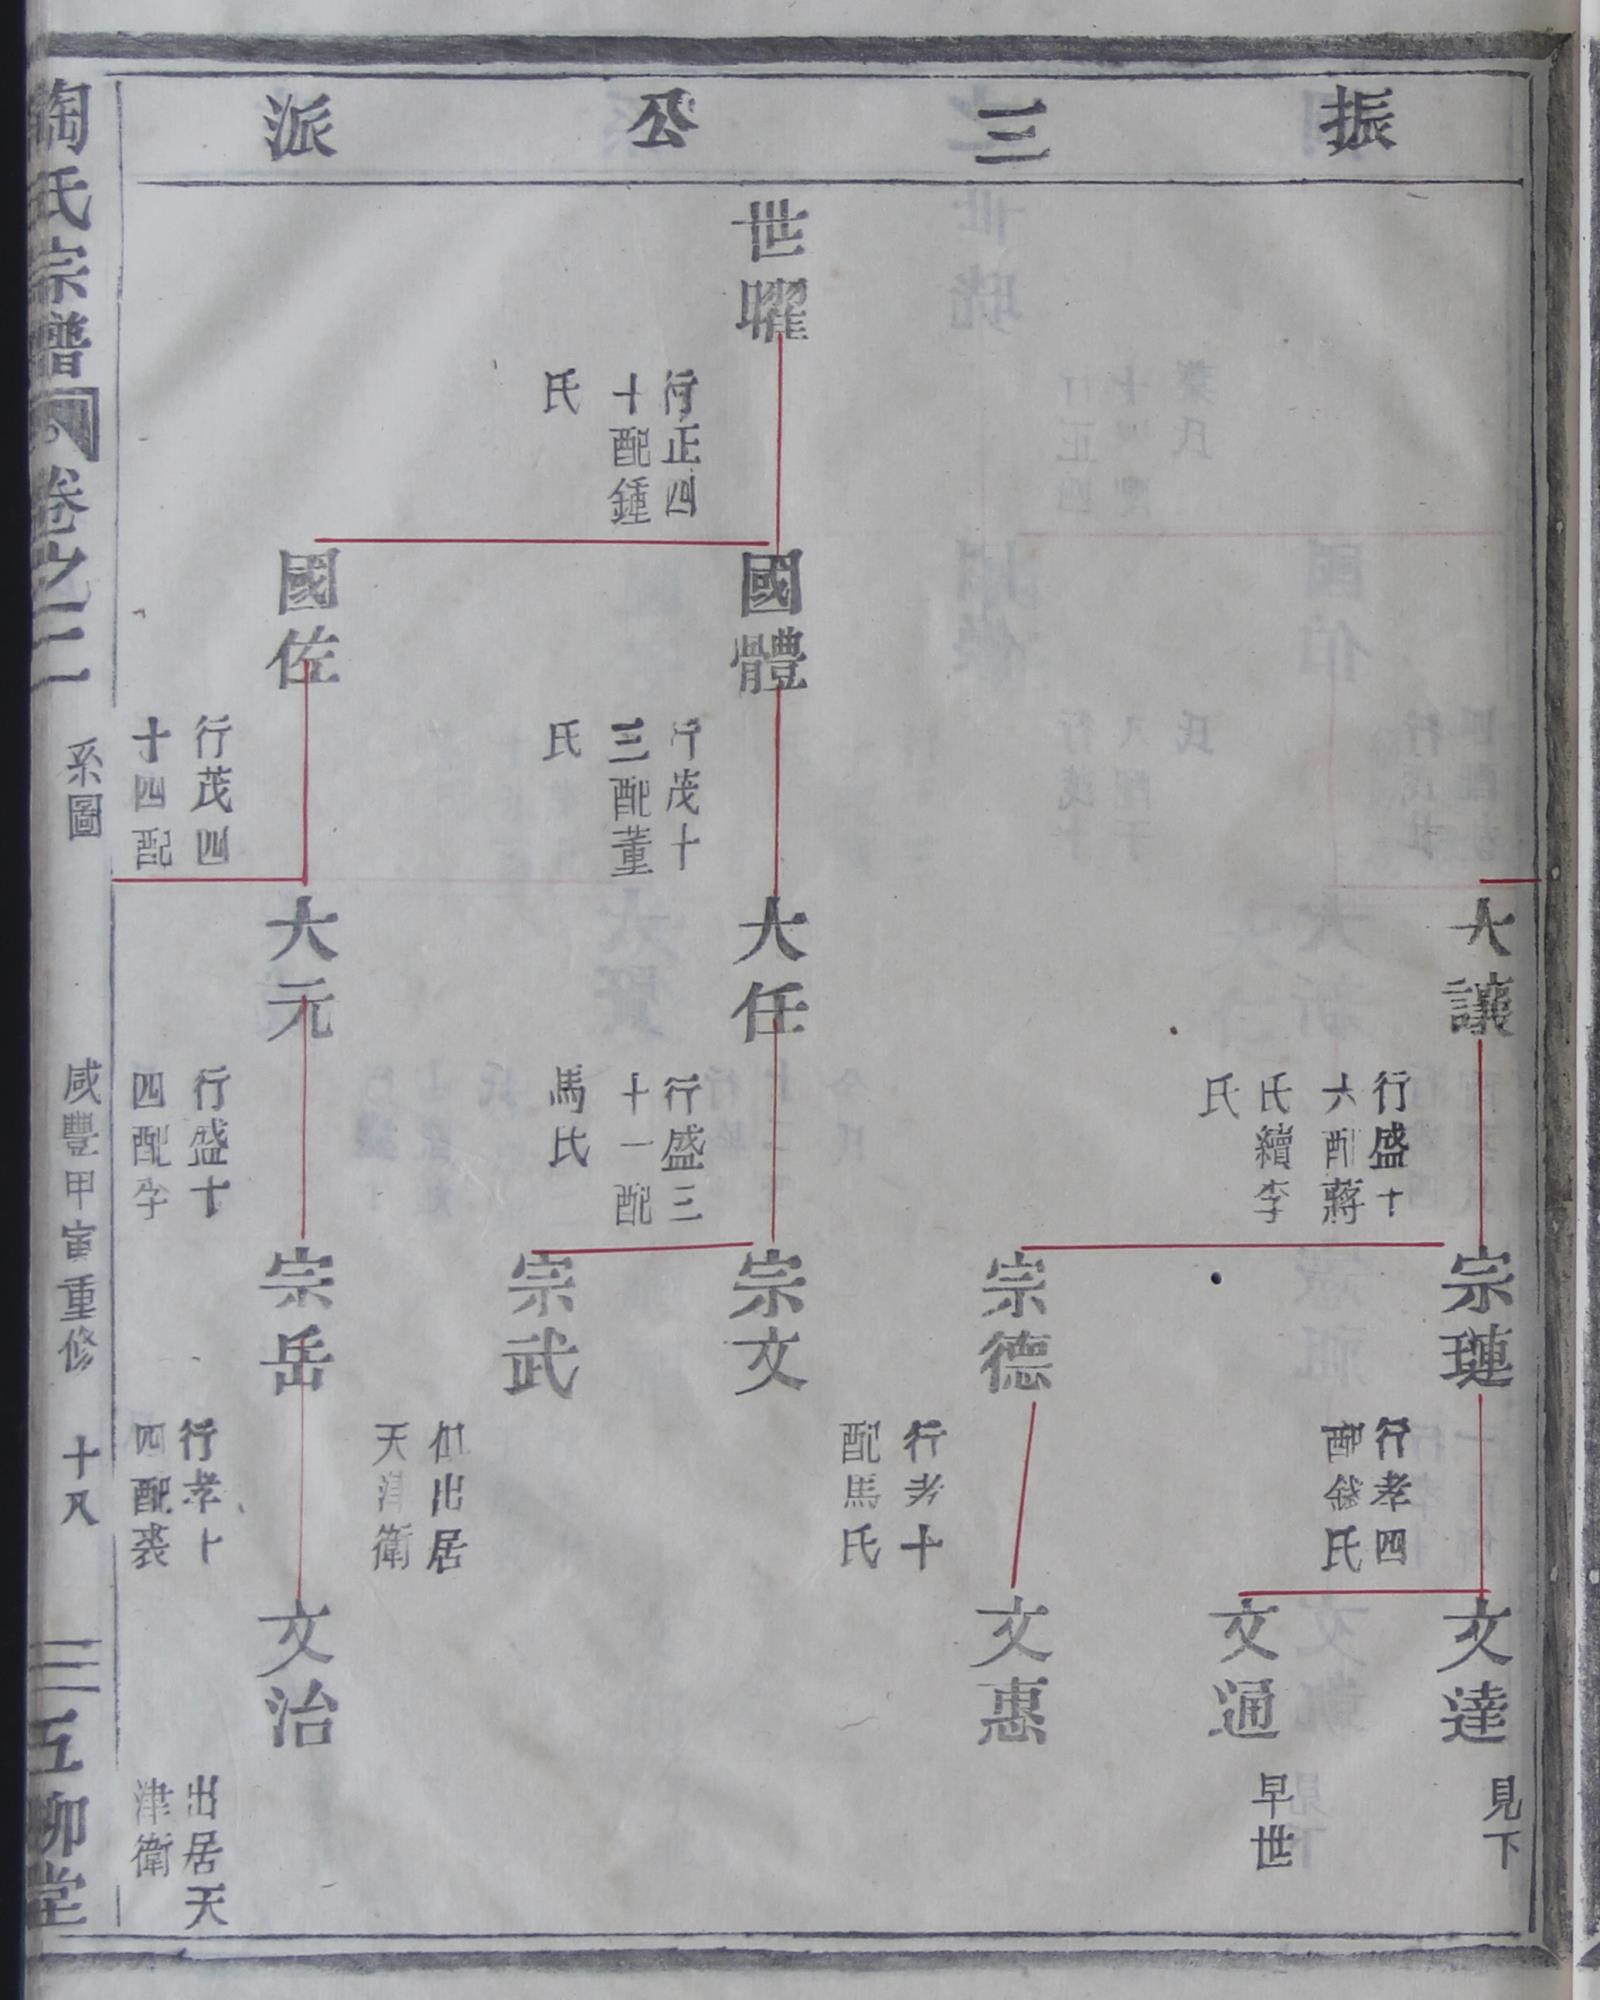 振三公派
世曜
行正四
十配鍾
氏
國體
行茂十
三配董
氏
國佐
行茂四
十四配
大讓
行盛十
六配蔣
氏續李
氏
大任
行盛三
十一配
馬氏
大元
行盛十
四配李
宗璉
行孝四
配錢氏
宗德
行孝十
配馬氏
宗文
宗武
俱出居
天津衛
宗岳
行孝十
四配裘
文達
見下
文通
早世
文惠
文治
出居天
津衛
陶氏宗譜
卷之二
系圖
咸豐甲寅重修
十八
五柳堂